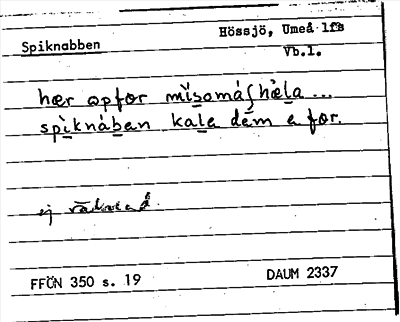 Spiknabben
Hössjö, Umeå lfs
Vb.l.
hær opfør mı̆somáʃhèla ...
spìknàban kala dém a før.
ej
FFÖN 350 s. 19
DAUM 2337